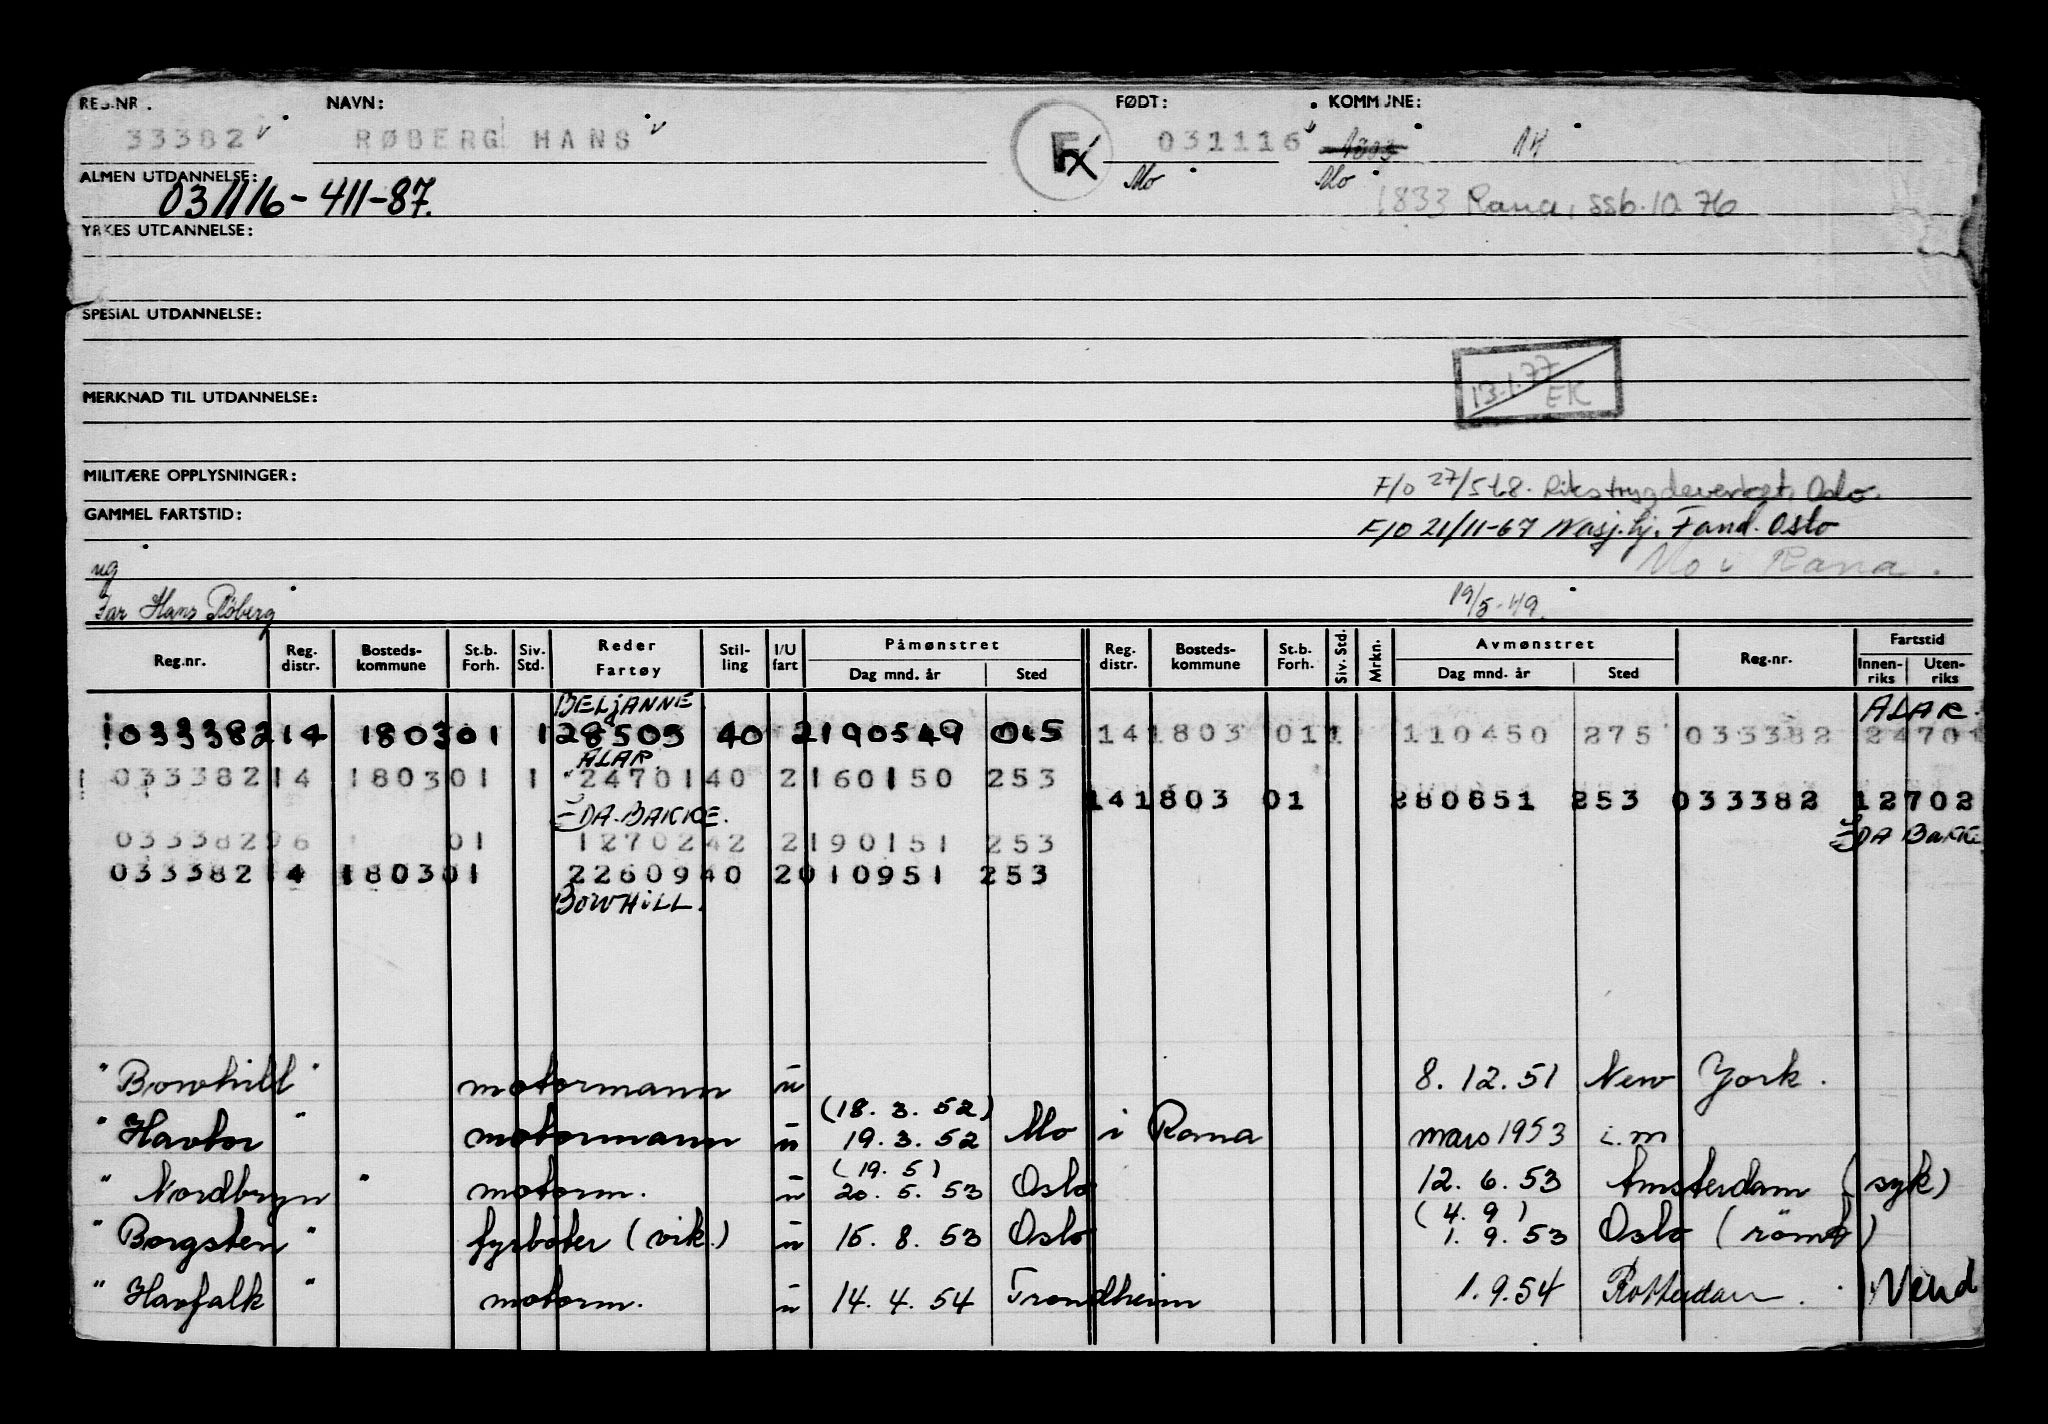 REG.NR. NAVN: FØDT: KOMMUNE:
33382 RØBERG HANS F 031116 14
ALMEN UTDANNELSE: Mo Mo
031116-411-87. 1833 Rana, ssb.10.76
YRKES UTDANNELSE:
SPESIAL UTDANNELSE:
13.1.77 EK
MERKNAD TIL UTDANNELSE:
MILITÆRE OPPLYSNINGER:
F/O 27/5-68. Rikstrygdeverket, Oslo.
GAMMEL FARTSTID:
F/O 21/11-67 Nasj.hj. Fand. Oslo
Mo i Rana.
ug
Far Hans Røberg 19/5-49.
Reg.nr. Reg. distr. Bosteds-kommune St.b. Forh. Siv. Std. Reder Fartøy Stil-ling I/U fart Påmønstret Dag mnd. år Sted Reg. distr. Bosteds-kommune St.b. Forh. Siv. Std. Mrkn. Avmønstret Dag mnd. år Sted Reg.nr. Fartstid Innen-riks Uten-riks
BELJANNE ALAR.
033382 14 1803 01 1 28505 40 2 190549 015 14 1803 01 1 110450 275 033382 24701
ALAR.
033382 14 1803 01 1 24701 40 2 160150 253
14 1803 01 280651 253 033382 12702
IDA BAKKE. IDA BAKKE
033382 96 01 12702 42 2 190151 253
033382 14 1803 01 22609 40 2 010951 253
BOWHILL.
"Bowhill" motormann u 8. 12. 51 New York.
(18. 3. 52)
"Havtor" motormann u 19. 3. 52 Mo i Rana mars 1953 i.m
(19. 5)
"Nordbryn" motorm. u 20. 5. 53 Oslo 12. 6. 53 Amsterdam (syk)
(4. 9)
"Borgsten" fyrbøter (vik.) u 15. 8. 53 Oslo 1. 9. 53 Oslo (römt)
"Havfalk" motorm. u 14. 4. 54 Trondheim 1. 9. 54 Rotterdam. Vend